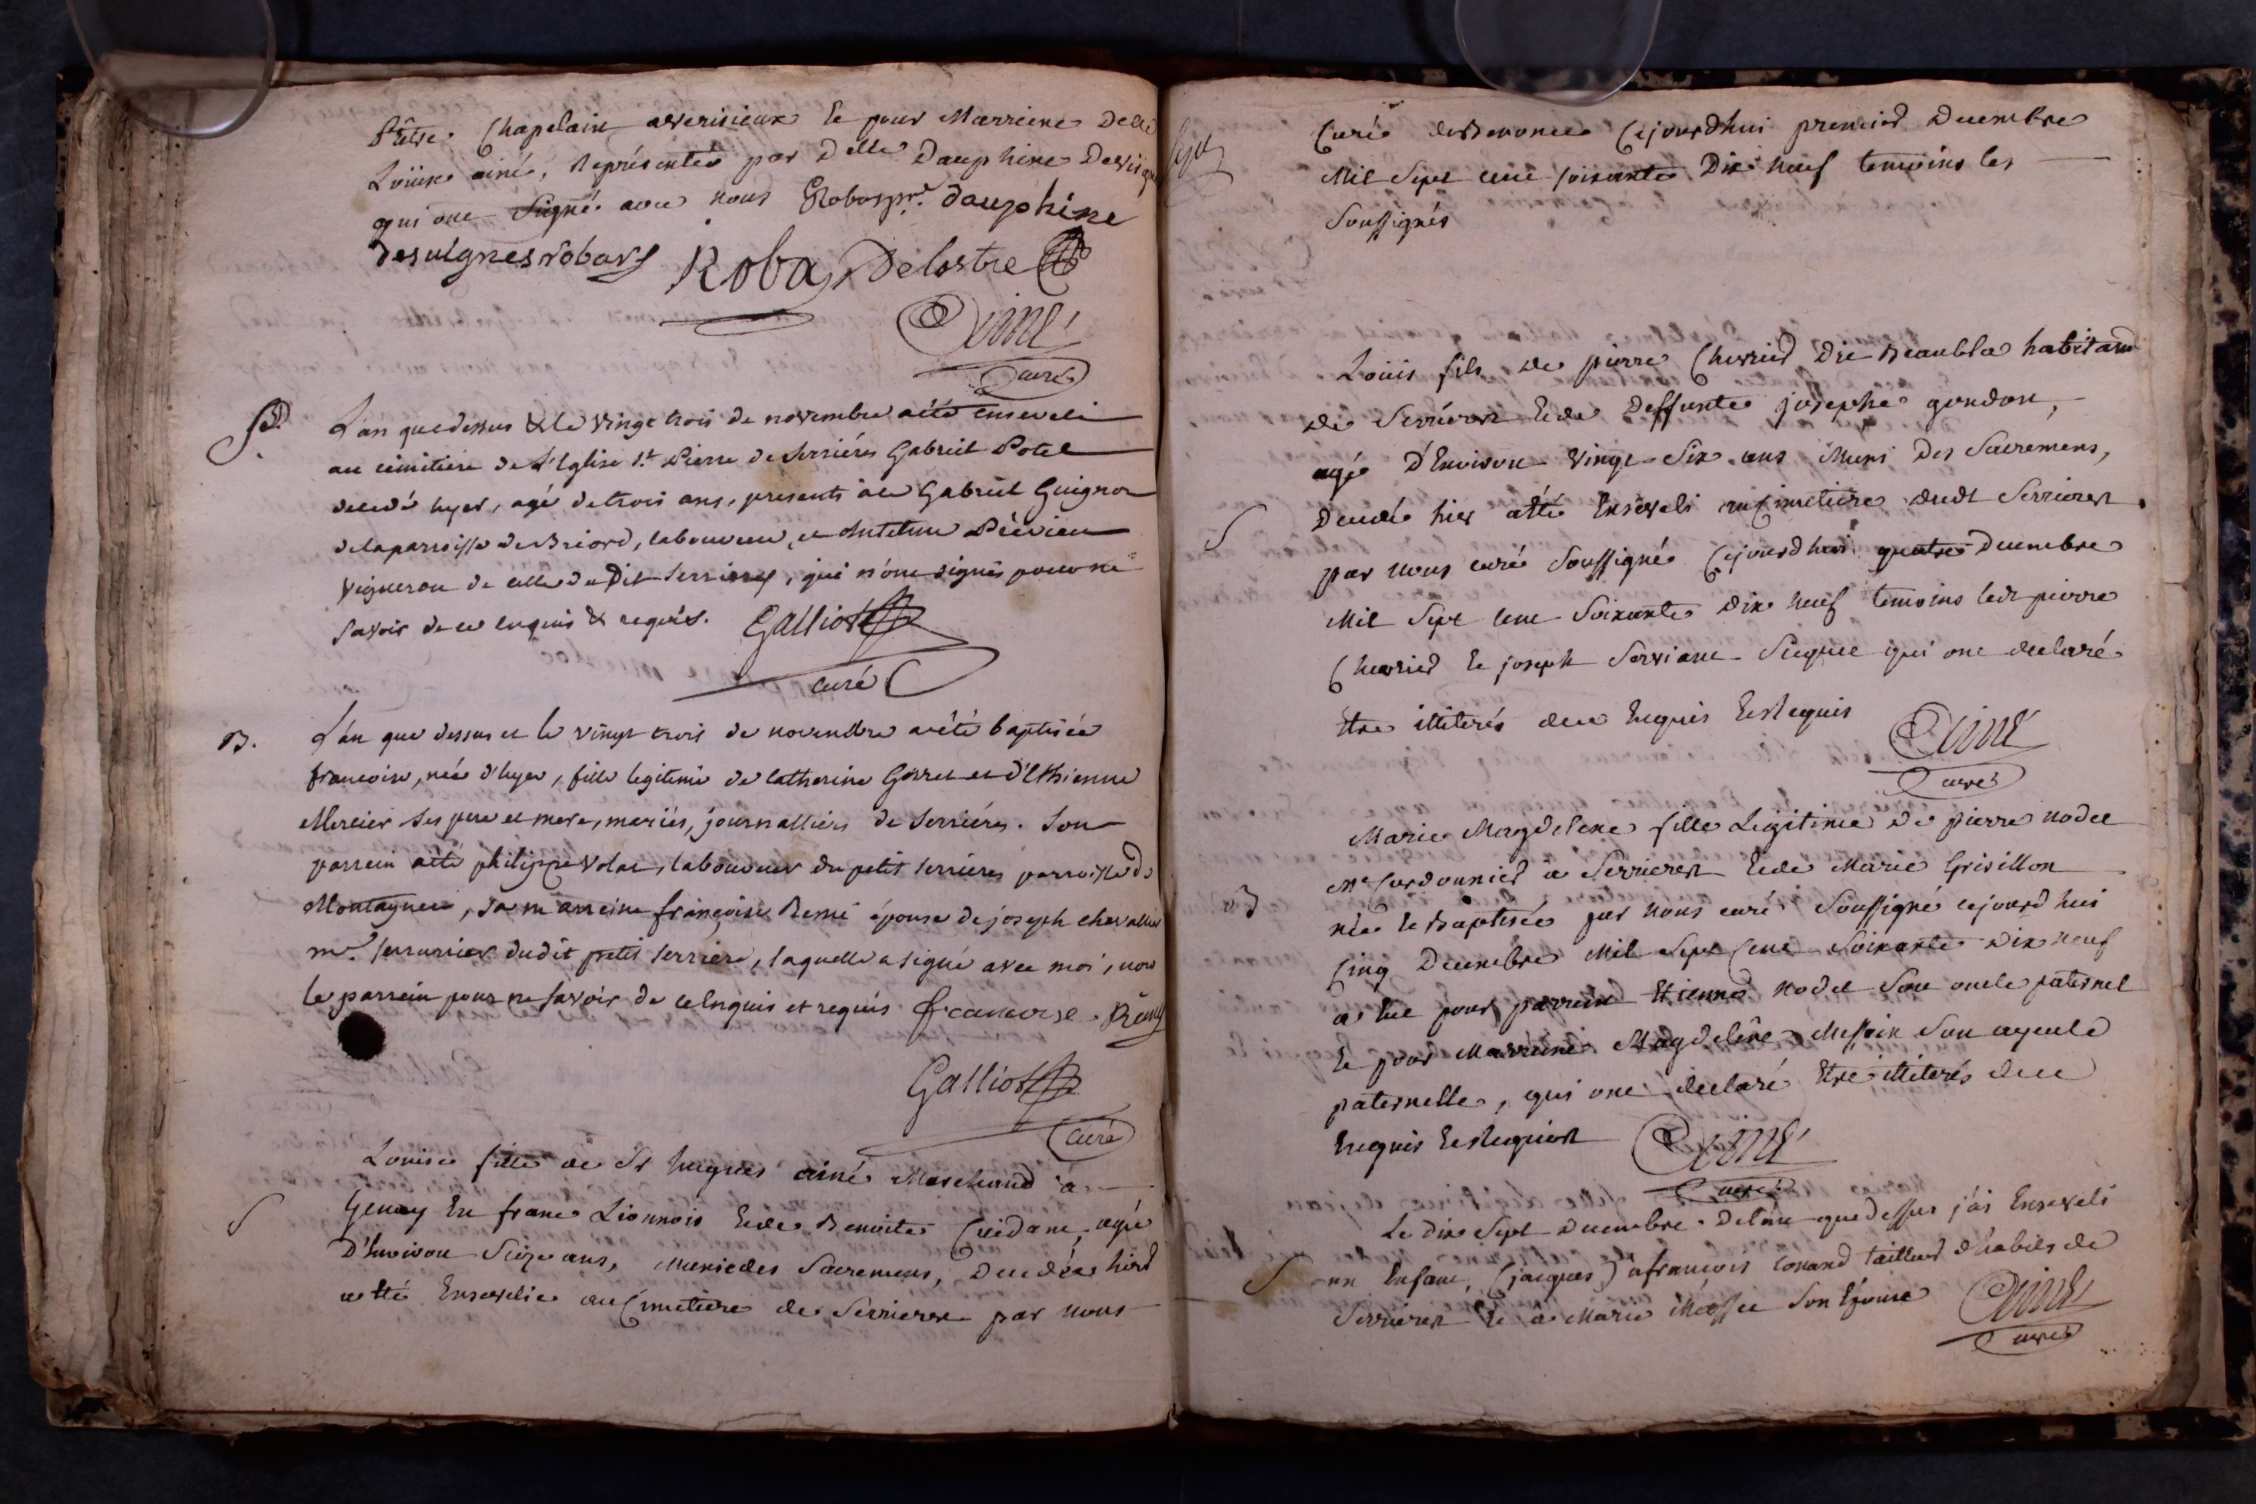 Prêtre Chapelain a Verisieux Et pour Marreine Delle
Loüise ainé, Représentée par Delle Dauphine Desvignes
qui ont Signé avec nous Robas ptre dauphine
Desvignes robas Robas Delastre
Quiné
curé
S. L'an que dessus & le vingt trois de novembre a été enseveli
au cimitiére de l'Eglise St Pierre de Serriéres Gabriel Potel
decedé hyer, agé de trois ans, presents à ce Gabriel Guignon
de la parroisse de Briord, laboureur, et Antelme Périer
vigneron de celle du Dit Serrieres, qui n'ont signés pour ne
savoir de ce enquis & requis. Galliot
curé
B. L'an que dessus et le vingt trois de novembre a été baptisée
francoise, née d'hyer, fille legitime de Catherine Gorret et d'Ethienne
Mercier ses pere et mere, mariés, journalliers de Serriéres. Son
parrein a été philippe Volat, laboureur du petit Serriéres parroisse de
Montagneu, sa marreine françoise Remi épouse de joseph chevallier
me. serrurier dudit petit Serriere, laquelle a signé avec moi, non
le parrein pour ne savoir de ce enquis et requis francoise Rémy
Galliot
curé
Louise fille de Sr hugues ainé Marchand à
S Genay En franc Lionnois Et de Benoite Cuidant, agée
D'Environ Seize ans, Munie des Sacremens, Decedée hier
a été Ensevelie au Cimetiere de Serrieres par nous
Curé de Benonce Cejourdhui premier Decembre
Mil Sept cent soixante Dix neuf temoins les
Soussignés
Loüis fils de pierre Cherrier Dit Beaublé habitant
de Serrieres Et de Deffunte josephe gondon,
agé D'Environ Vingt Six ans Muni Des Sacremens,
S Decedé hier a été Enseveli au Cimetiere dudt Serrieres
par nous curé Soussigné Cejourdhui quatre Decembre
Mil Sept cent Soixante dix neuf temoins ledt pierre
Cherrier Et joseph Serviant qui ont declaré
Etre illiterés de ce Enquis Et Requis
Quiné
curé
Marie Magdelene fille Legitime de pierre nodet
Me Cordonnier a Serrieres Et de Marie Grisillon
B née Et Baptisée par nous curé Soussigné cejourdhui
Cinq Decembre Mil Sept Cent Soixante Dix neuf
a Eu pour parrein Etienne nodet Son oncle paternel
Et pour Marreine Magdelêne Messoin Son ayeule
paternelle, qui ont declaré Etre illiterés de ce
Enquis Et Requis Quiné
curé
Le dix Sept Decembre De l'an que dessus j'ai Enseveli
S un Enfant, (jacques) a francois Conand tailleur d'habits de
Serrieres Et a Marie Son Epouse Quiné
curé